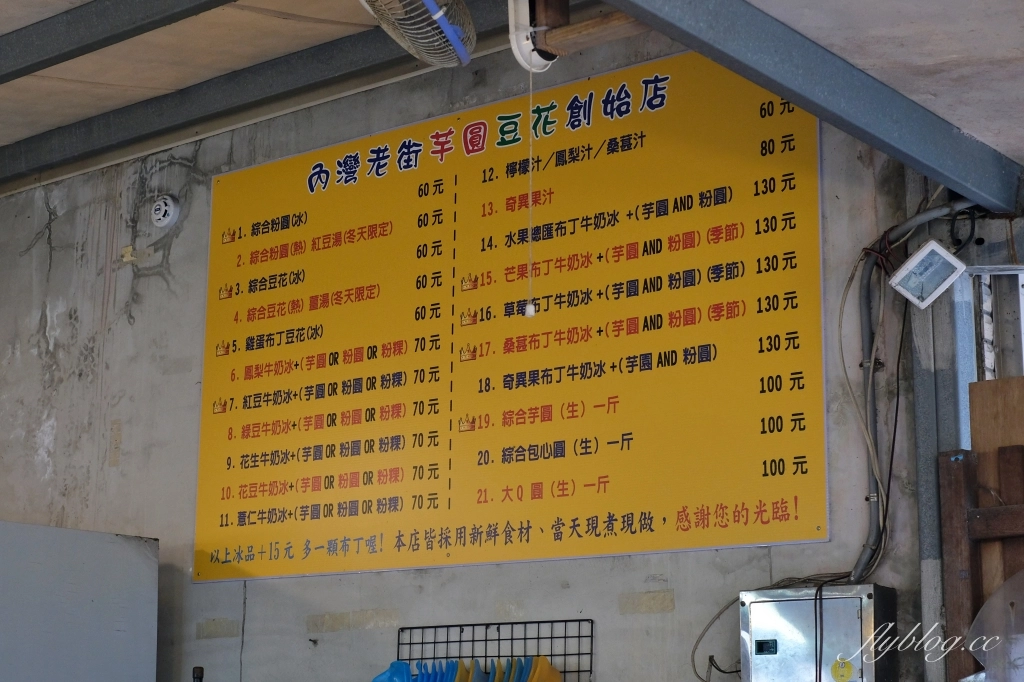 內灣老街芋圓豆花創始店
1. 綜合粉圓(冰) 60元
2. 綜合粉圓(熱) 紅豆湯(冬天限定) 60元
3. 綜合豆花(冰) 60元
4. 綜合豆花(熱) 薑湯(冬天限定) 60元
5. 雞蛋布丁豆花(冰) 60元
6. 鳳梨牛奶冰+(芋圓 OR 粉圓 OR 粉粿) 70元
7. 紅豆牛奶冰+(芋圓 OR 粉圓 OR 粉粿) 70元
8. 綠豆牛奶冰+(芋圓 OR 粉圓 OR 粉粿) 70元
9. 花生牛奶冰+(芋圓 OR 粉圓 OR 粉粿) 70元
10. 花豆牛奶冰+(芋圓 OR 粉圓 OR 粉粿) 70元
11. 薏仁牛奶冰+(芋圓 OR 粉圓 OR 粉粿) 70元
12. 檸檬汁／鳳梨汁／桑葚汁 60元
13. 奇異果汁 80元
14. 水果總匯布丁牛奶冰 +(芋圓 AND 粉圓) 130元
15. 芒果布丁牛奶冰 +(芋圓 AND 粉圓)(季節) 130元
16. 草莓布丁牛奶冰 +(芋圓 AND 粉圓)(季節) 130元
17. 桑葚布丁牛奶冰 +(芋圓 AND 粉圓)(季節) 130元
18. 奇異果布丁牛奶冰 +(芋圓 AND 粉圓) 130元
19. 綜合芋圓（生）一斤 100元
20. 綜合包心圓（生）一斤 100元
21. 大Q圓（生）一斤 100元
以上冰品+15元 多一顆布丁喔! 本店皆採用新鮮食材、當天現煮現做，感謝您的光臨!
flyblog.cc